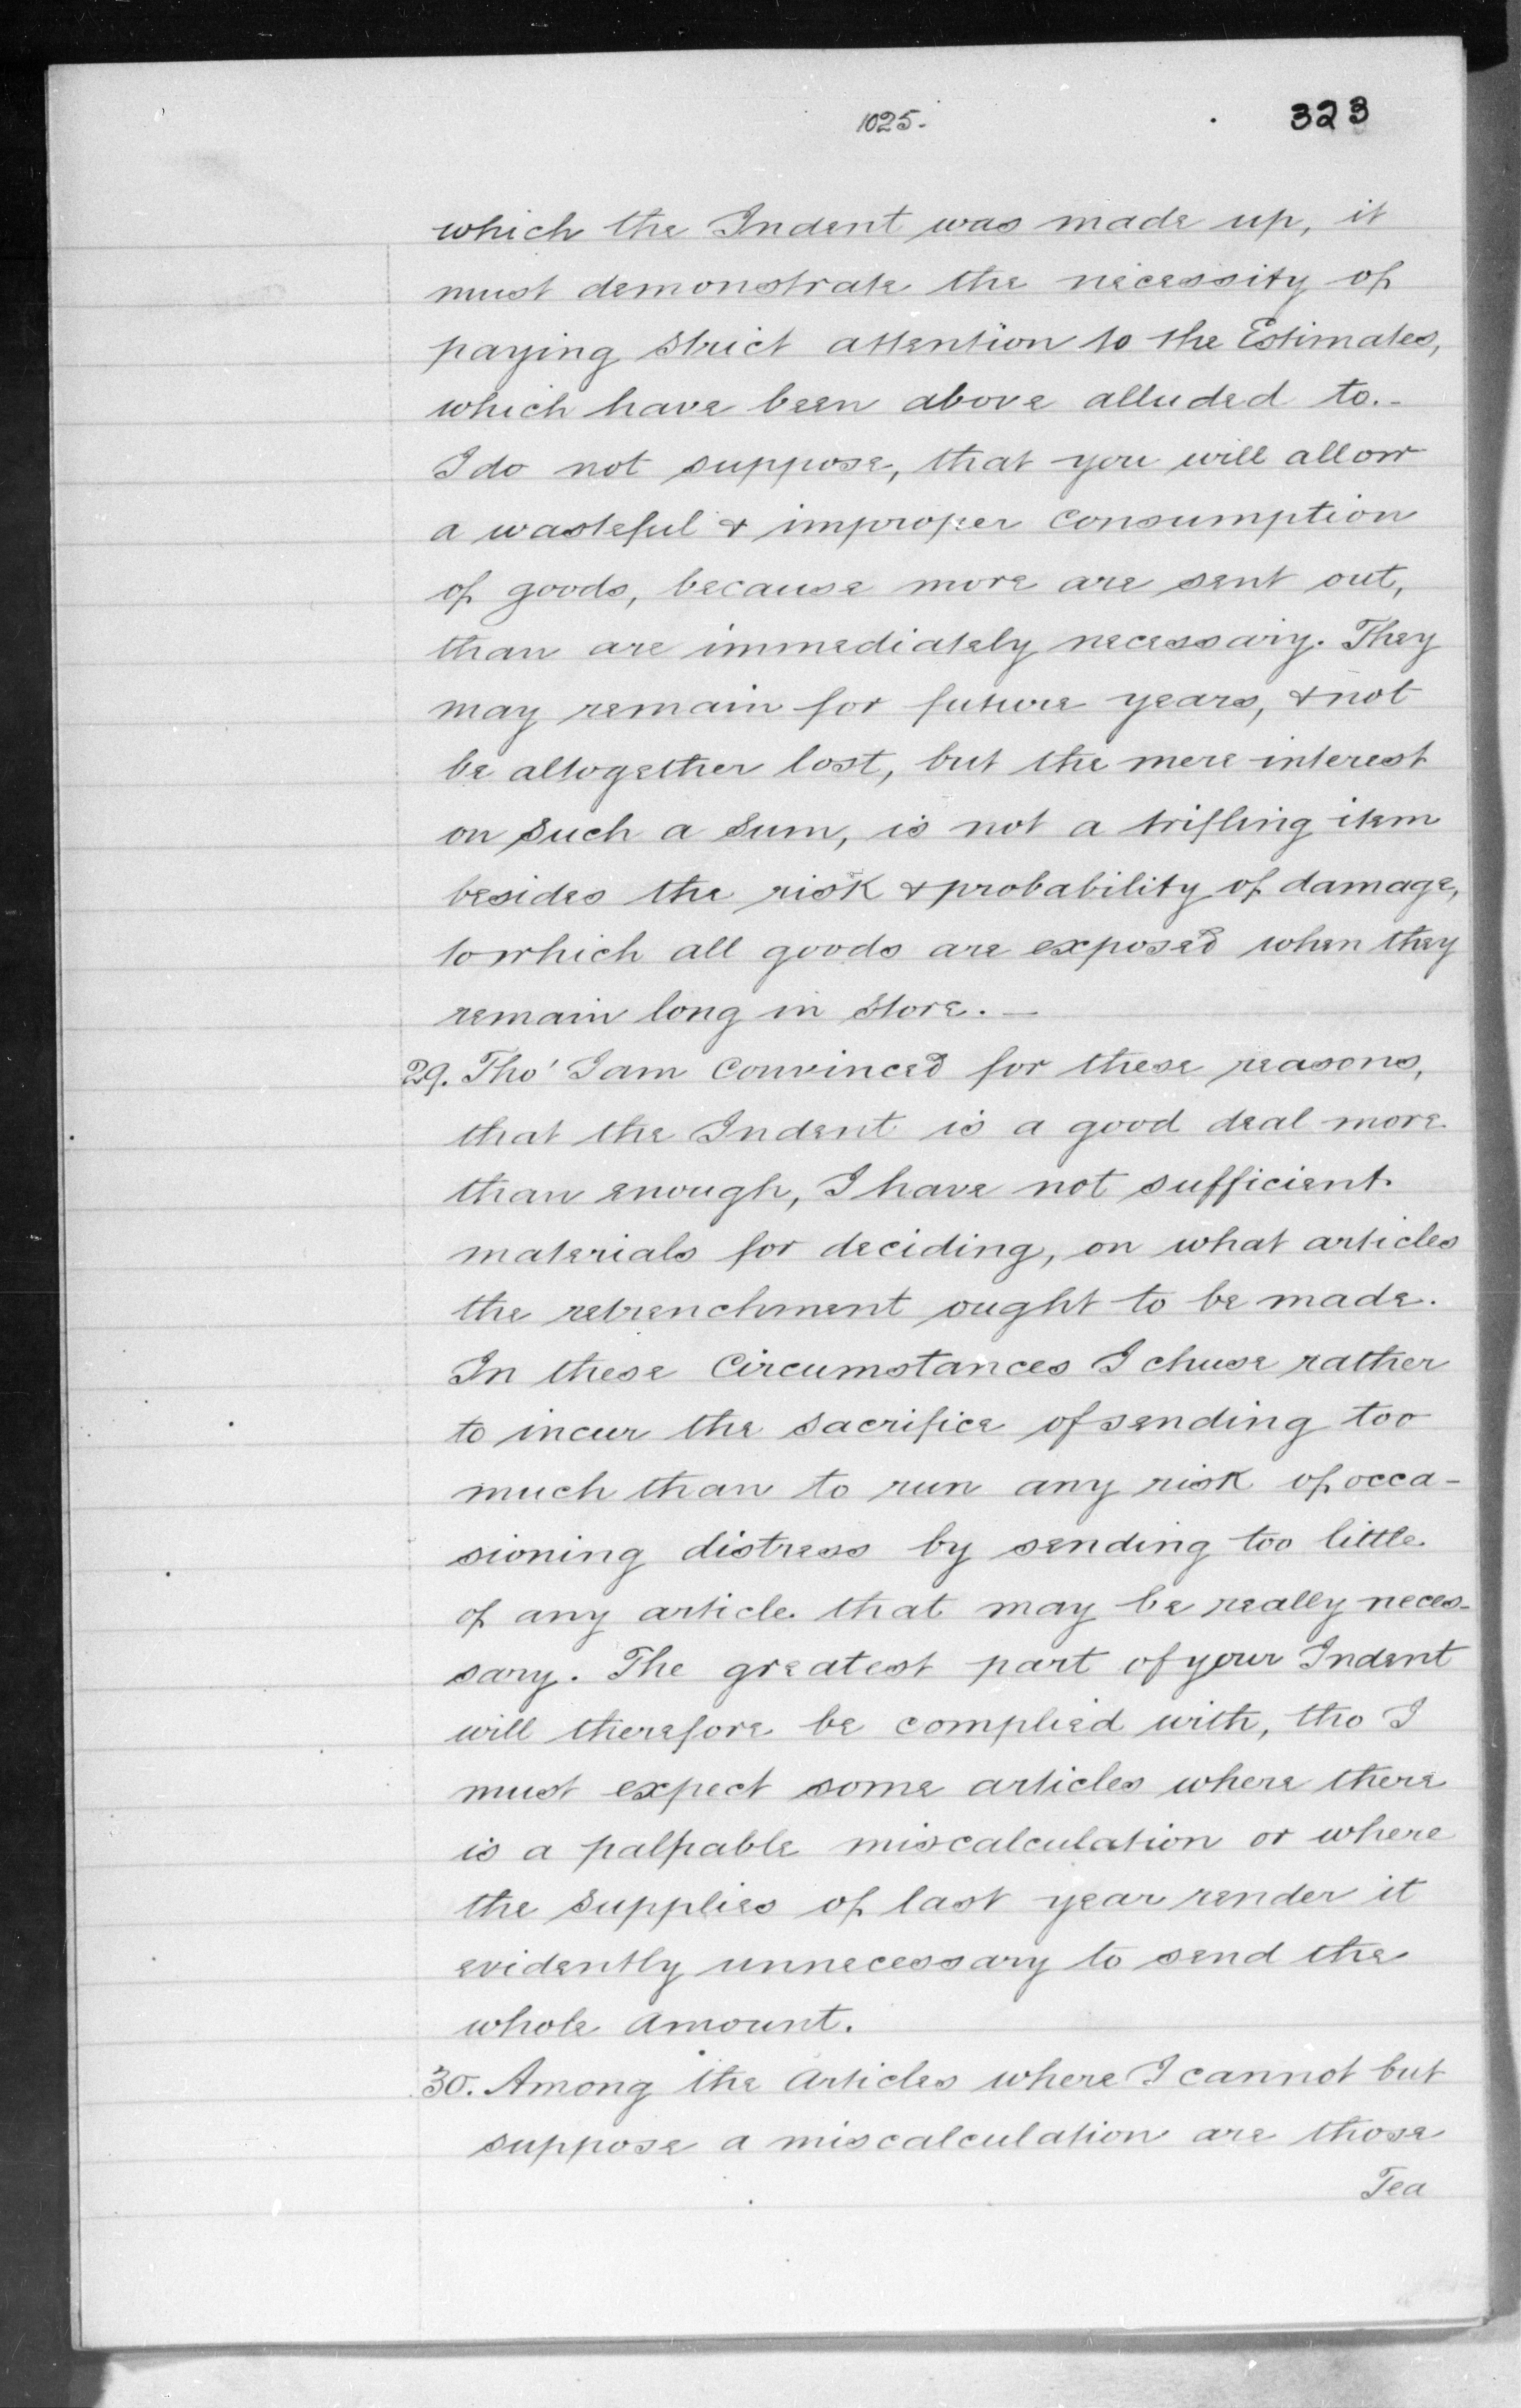 1025.
323
which the Indent was made up, it
must demonstrate the necessity of
paying strict attention to the Estimates,
which have been above alluded to.-
I do not suppose, that you will allow
a wasteful & improper consumption
of goods, because more are sent out,
than are immediately necessary. They
may remain for future years, & not
be altogether lost, but the mere interest
on such a sum, is not a trifling item
besides the risk & probability of damage,
to which all goods are exposed when they
remain long in store. —
29. Tho' I am Convinced for these reasons,
that the Indent is a good deal more
than enough, I have not sufficient
materials for deciding, on what articles
the retrenchment ought to be made.
In these Circumstances I chuse rather
to incur the sacrifice of sending too
much than to run any risk of occa-
sioning distress by sending too little
of any article that may be really neces-
sary. The greatest part of your Indent
will therefore be complied with, tho I
must expect some articles where there
is a palpable miscalculation or where
the supplies of last year render it
evidently unnecessary to send the
whole amount.
30. Among the articles where I cannot but
suppose a miscalculation are those
Tea